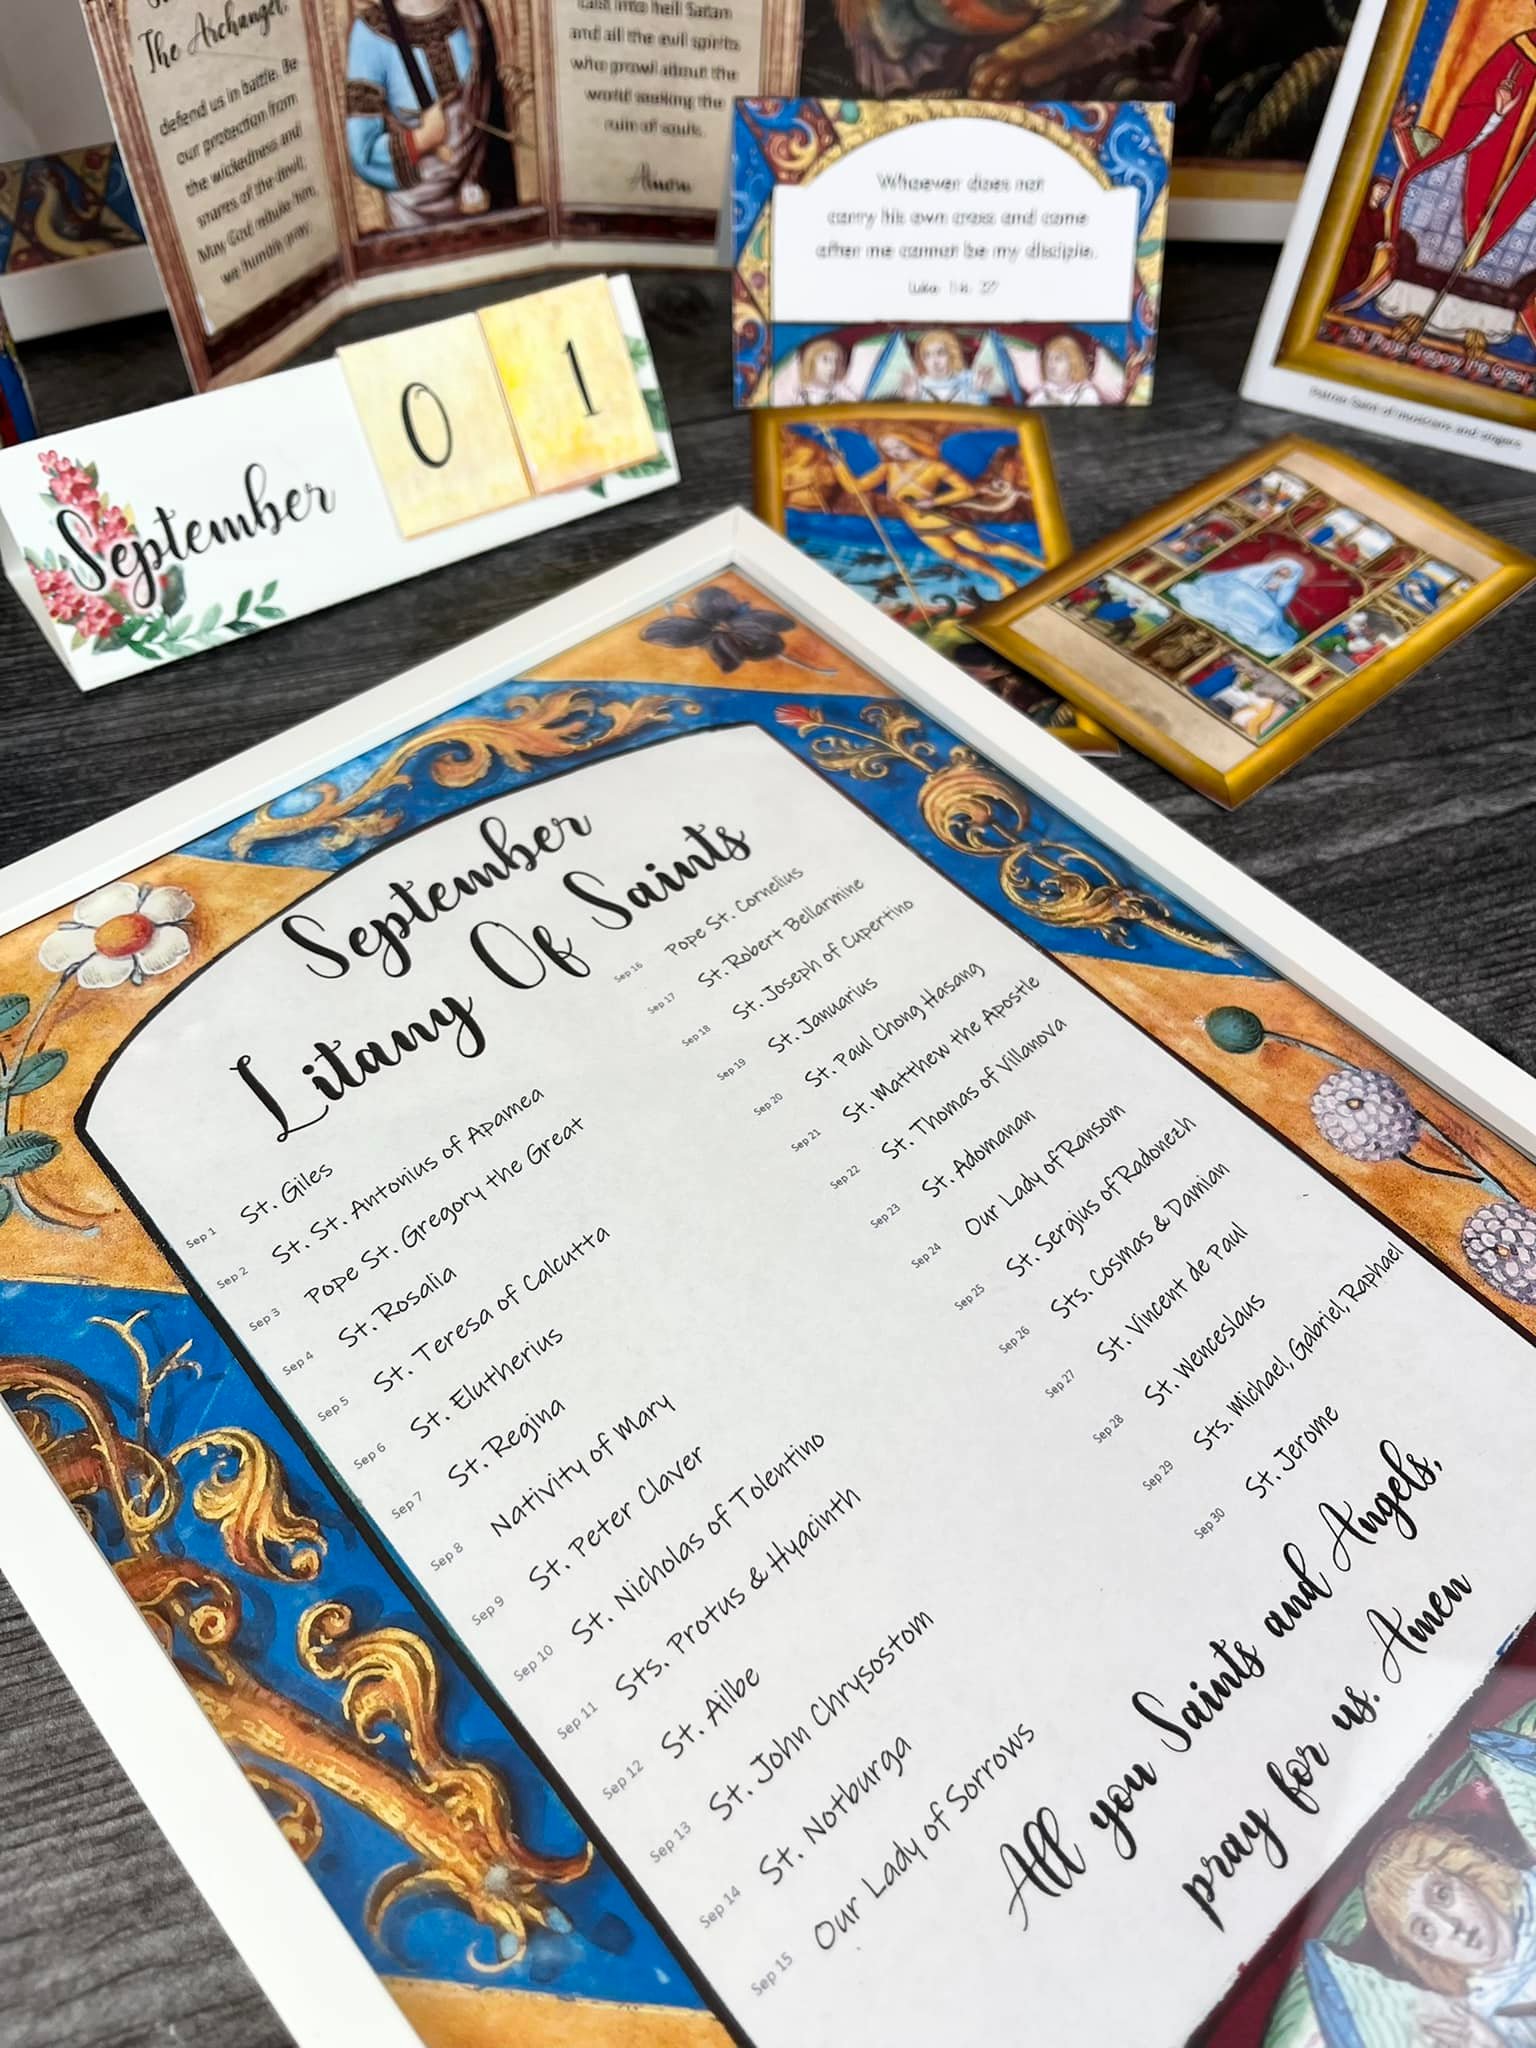 The Archangel,
defend us in battle. Be
our protection from
the wickedness and
snares of the devil;
May God rebuke him,
we humbly pray;
cast into hell Satan
and all the evil spirits
who prowl about the
world seeking the
ruin of souls.
Amen
Whoever does not
carry his own cross and come
after me cannot be my disciple.
Luke 14: 27
St. Pope Gregory the Great
Patron Saint of musicians and singers
September
0 1
September
Litany Of Saints
Sep 1 St. Giles
Sep 2 St. St. Antonius of Apamea
Sep 3 Pope St. Gregory the Great
Sep 4 St. Rosalia
Sep 5 St. Teresa of Calcutta
Sep 6 St. Elutherius
Sep 7 St. Regina
Sep 8 Nativity of Mary
Sep 9 St. Peter Claver
Sep 10 St. Nicholas of Tolentino
Sep 11 Sts. Protus & Hyacinth
Sep 12 St. Ailbe
Sep 13 St. John Chrysostom
Sep 14 St. Notburga
Sep 15 Our Lady of Sorrows
Sep 16 Pope St. Cornelius
Sep 17 St. Robert Bellarmine
Sep 18 St. Joseph of Cupertino
Sep 19 St. Januarius
Sep 20 St. Paul Chong Hasang
Sep 21 St. Matthew the Apostle
Sep 22 St. Thomas of Villanova
Sep 23 St. Adomanan
Sep 24 Our Lady of Ransom
Sep 25 St. Sergius of Radonezh
Sep 26 Sts. Cosmas & Damian
Sep 27 St. Vincent de Paul
Sep 28 St. Wenceslaus
Sep 29 Sts. Michael, Gabriel, Raphael
Sep 30 St. Jerome
All you Saints and Angels,
pray for us. Amen